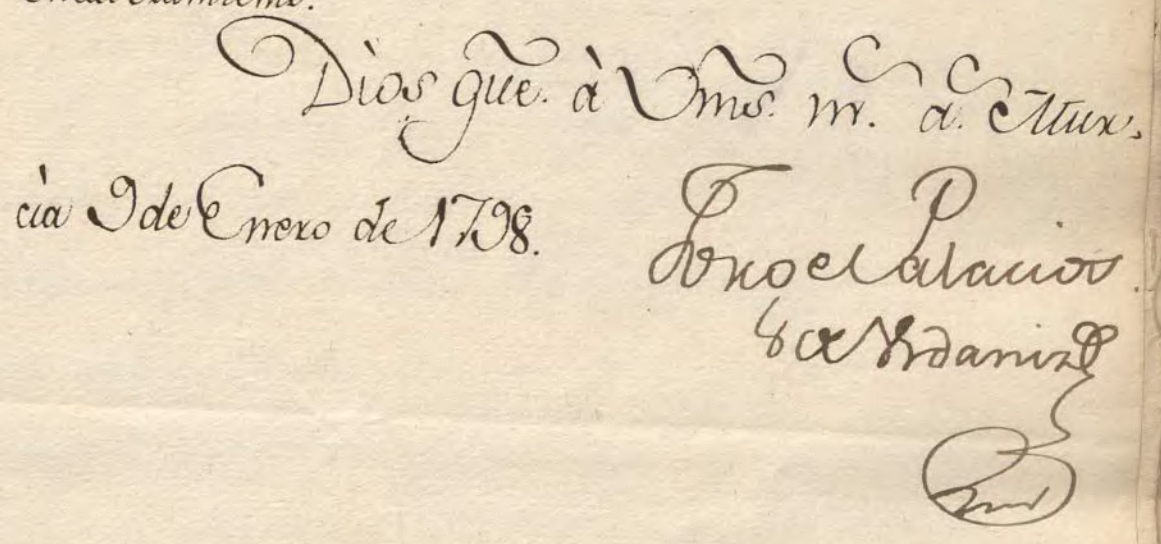 Dios gũe. à Vms. m.ˢ a.ˢ Mur-
cia 9 de Enero de 1798.
Jorge Palacios
de Urdaniz